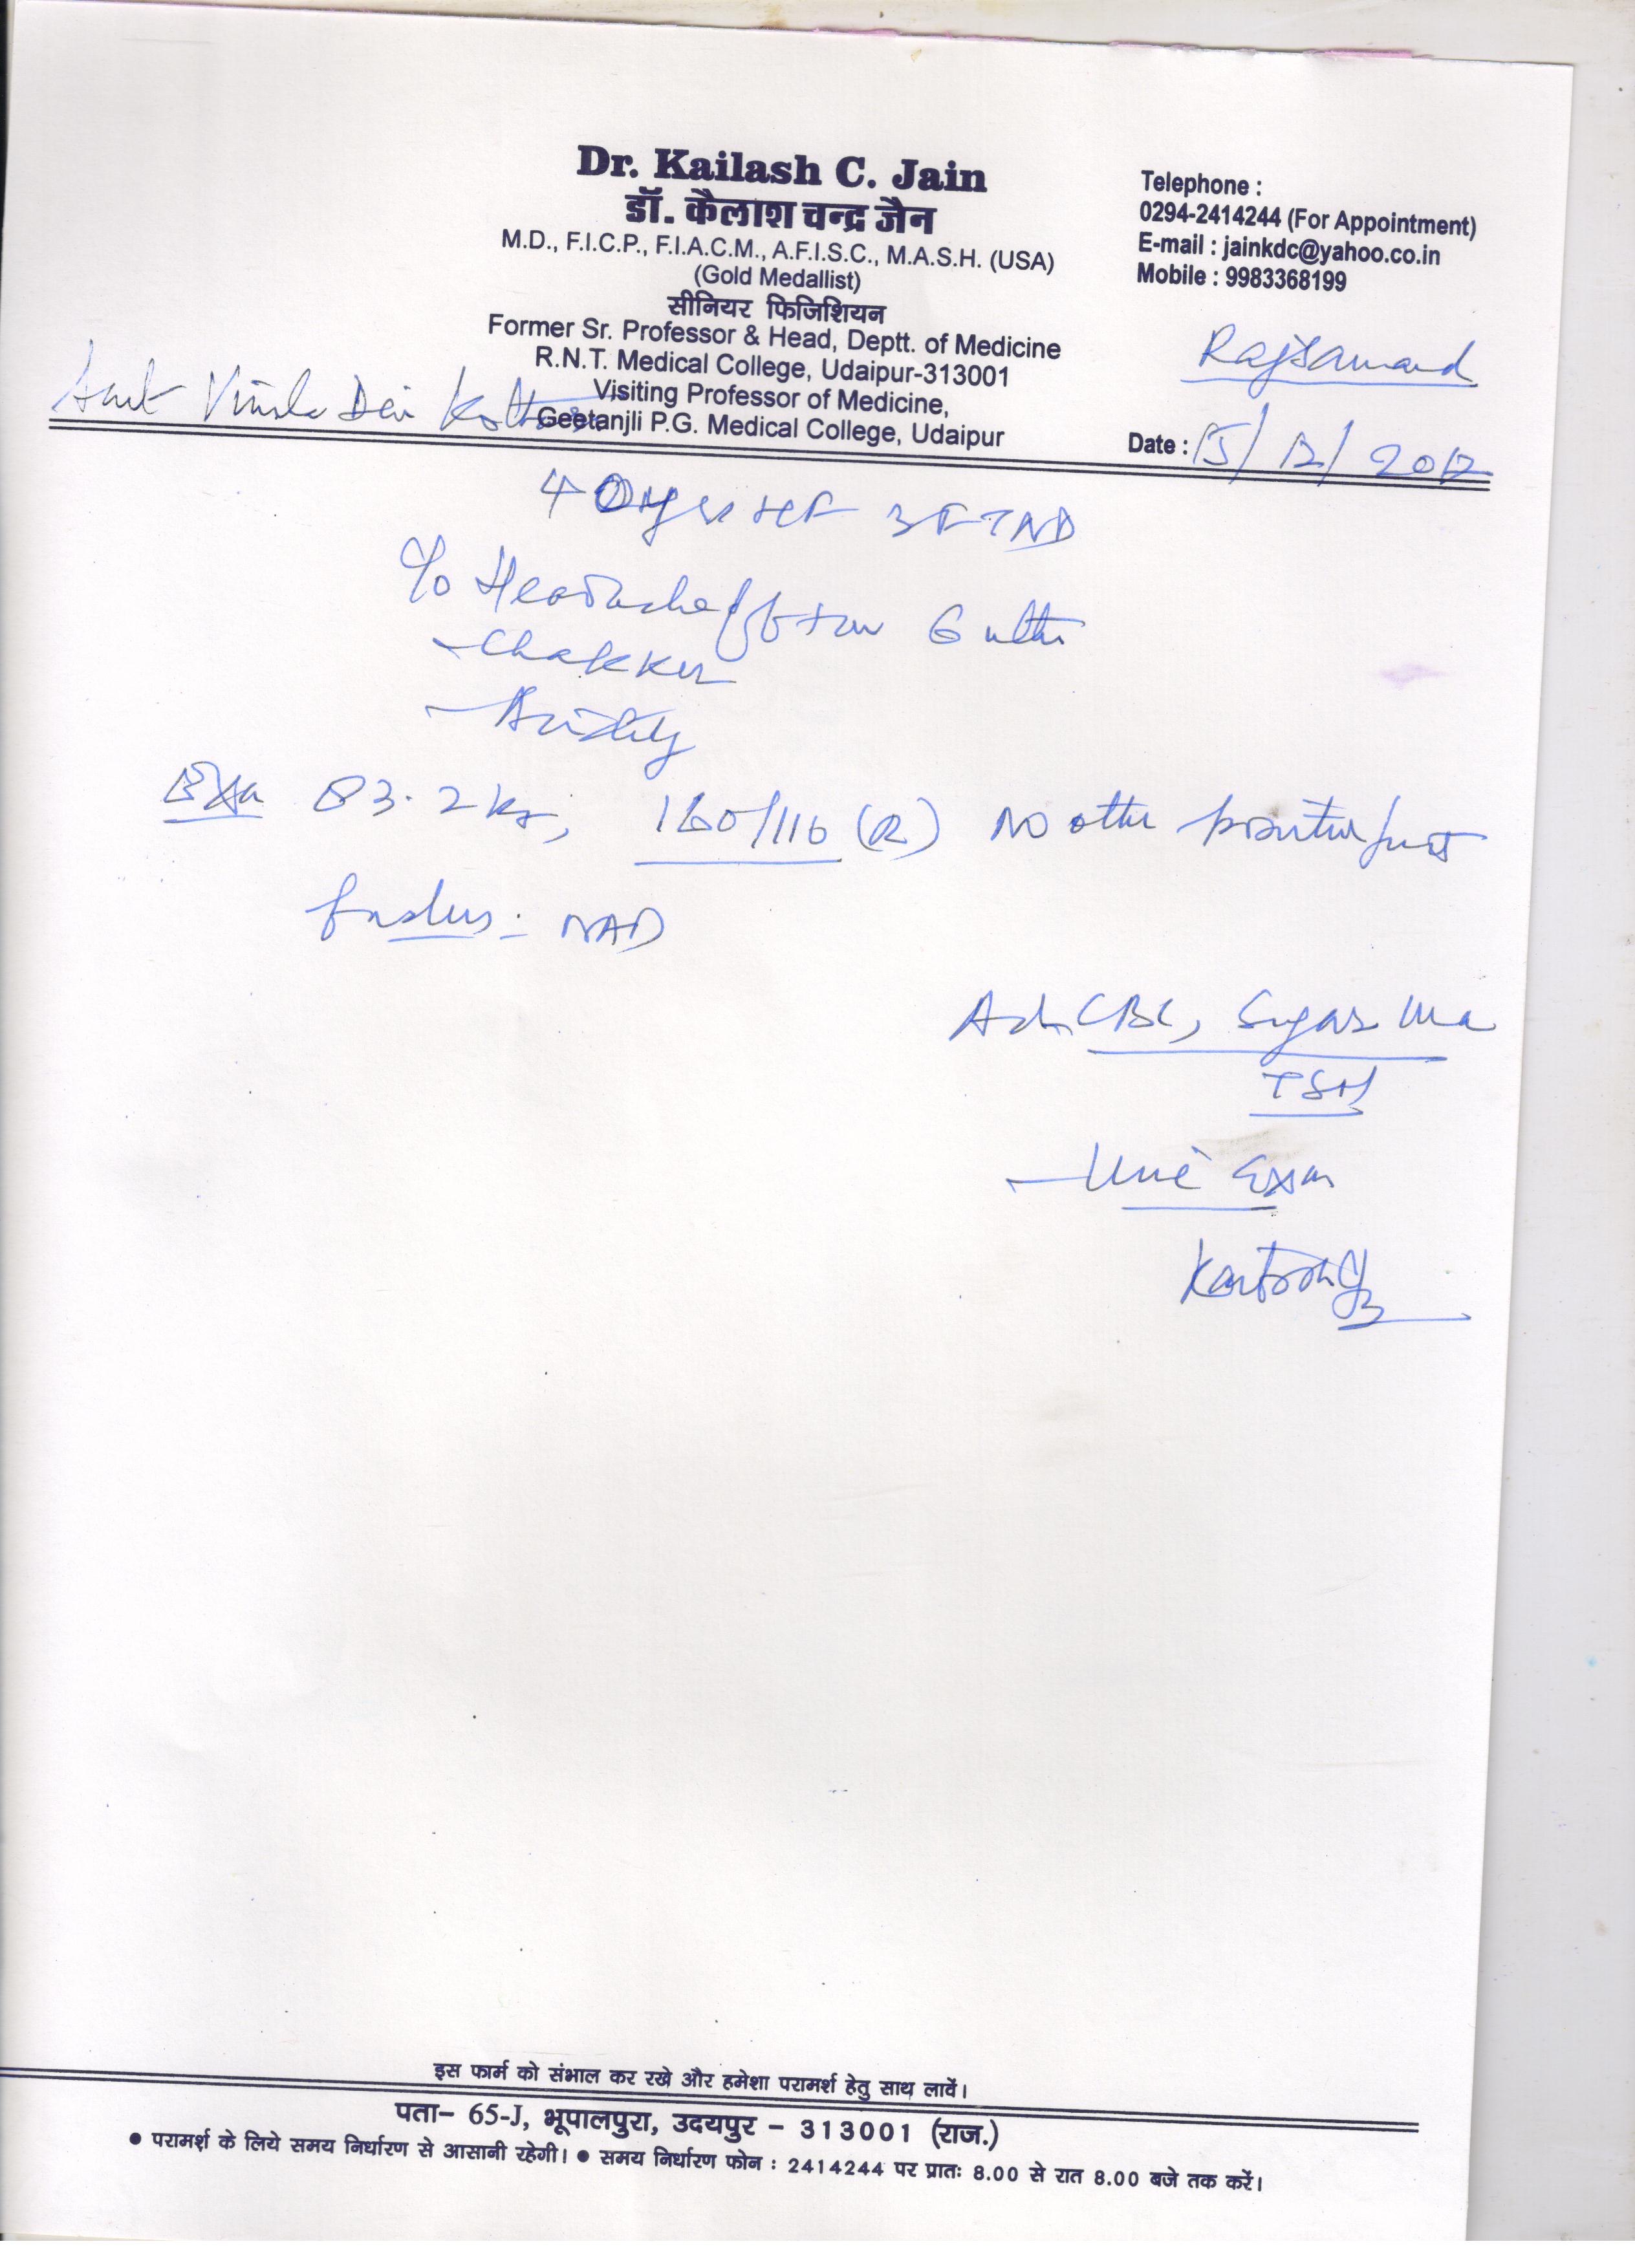 Dr. Kailash C. Jain
डॉ. कैलाश चन्द्र जैन
M.D., F.I.C.P., F.I.A.C.M., A.F.I.S.C., M.A.S.H. (USA)
(Gold Medallist)
सीनियर फिजिशियन
Former Sr. Professor & Head, Deptt. of Medicine
R.N.T. Medical College, Udaipur-313001
Visiting Professor of Medicine,
Geetanjli P.G. Medical College, Udaipur
Telephone :
0294-2414244 (For Appointment)
E-mail : jainkdc@yahoo.co.in
Mobile : 9983368199
Rajsamand
Smt Vimla Devi
Date : 15/12/2012
40 yrs HF 3FTND
c/o Headache 6 mths
- Chakker
- Anxiety
Exa 83.2 kg, 160/110 (R) No other positive
fundus :- NAD
Adv CBC, Sugar
TSH
- Urine Exam
इस फार्म को संभाल कर रखे और हमेशा परामर्श हेतु साथ लावें।
पता- 65-J, भूपालपुरा, उदयपुर - 313001 (राज.)
● परामर्श के लिये समय निर्धारण से आसानी रहेगी। ● समय निर्धारण फोन : 2414244 पर प्रातः 8.00 से रात 8.00 बजे तक करें।